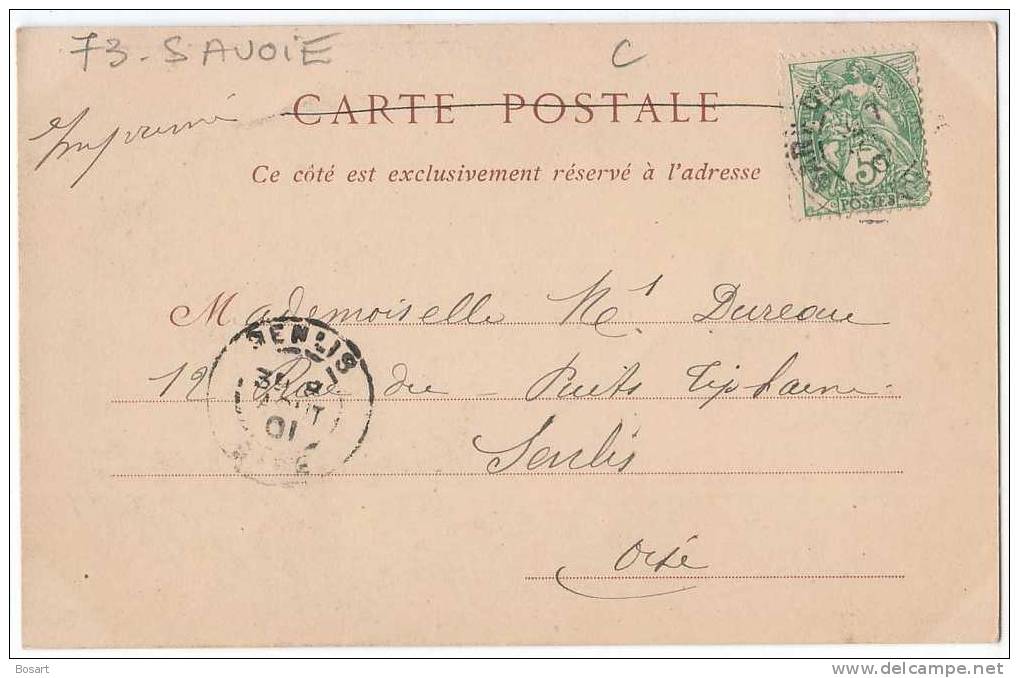 73 - SAVOIE
C
Imprimé
CARTE POSTALE
Ce côté est exclusivement réservé à l'adresse
5
POSTES
Mademoiselle Dureau
12 Rue du Puits Tiphaine
Senlis
Oise
SENLIS
AOUT
01
Bosart
delcampe.net